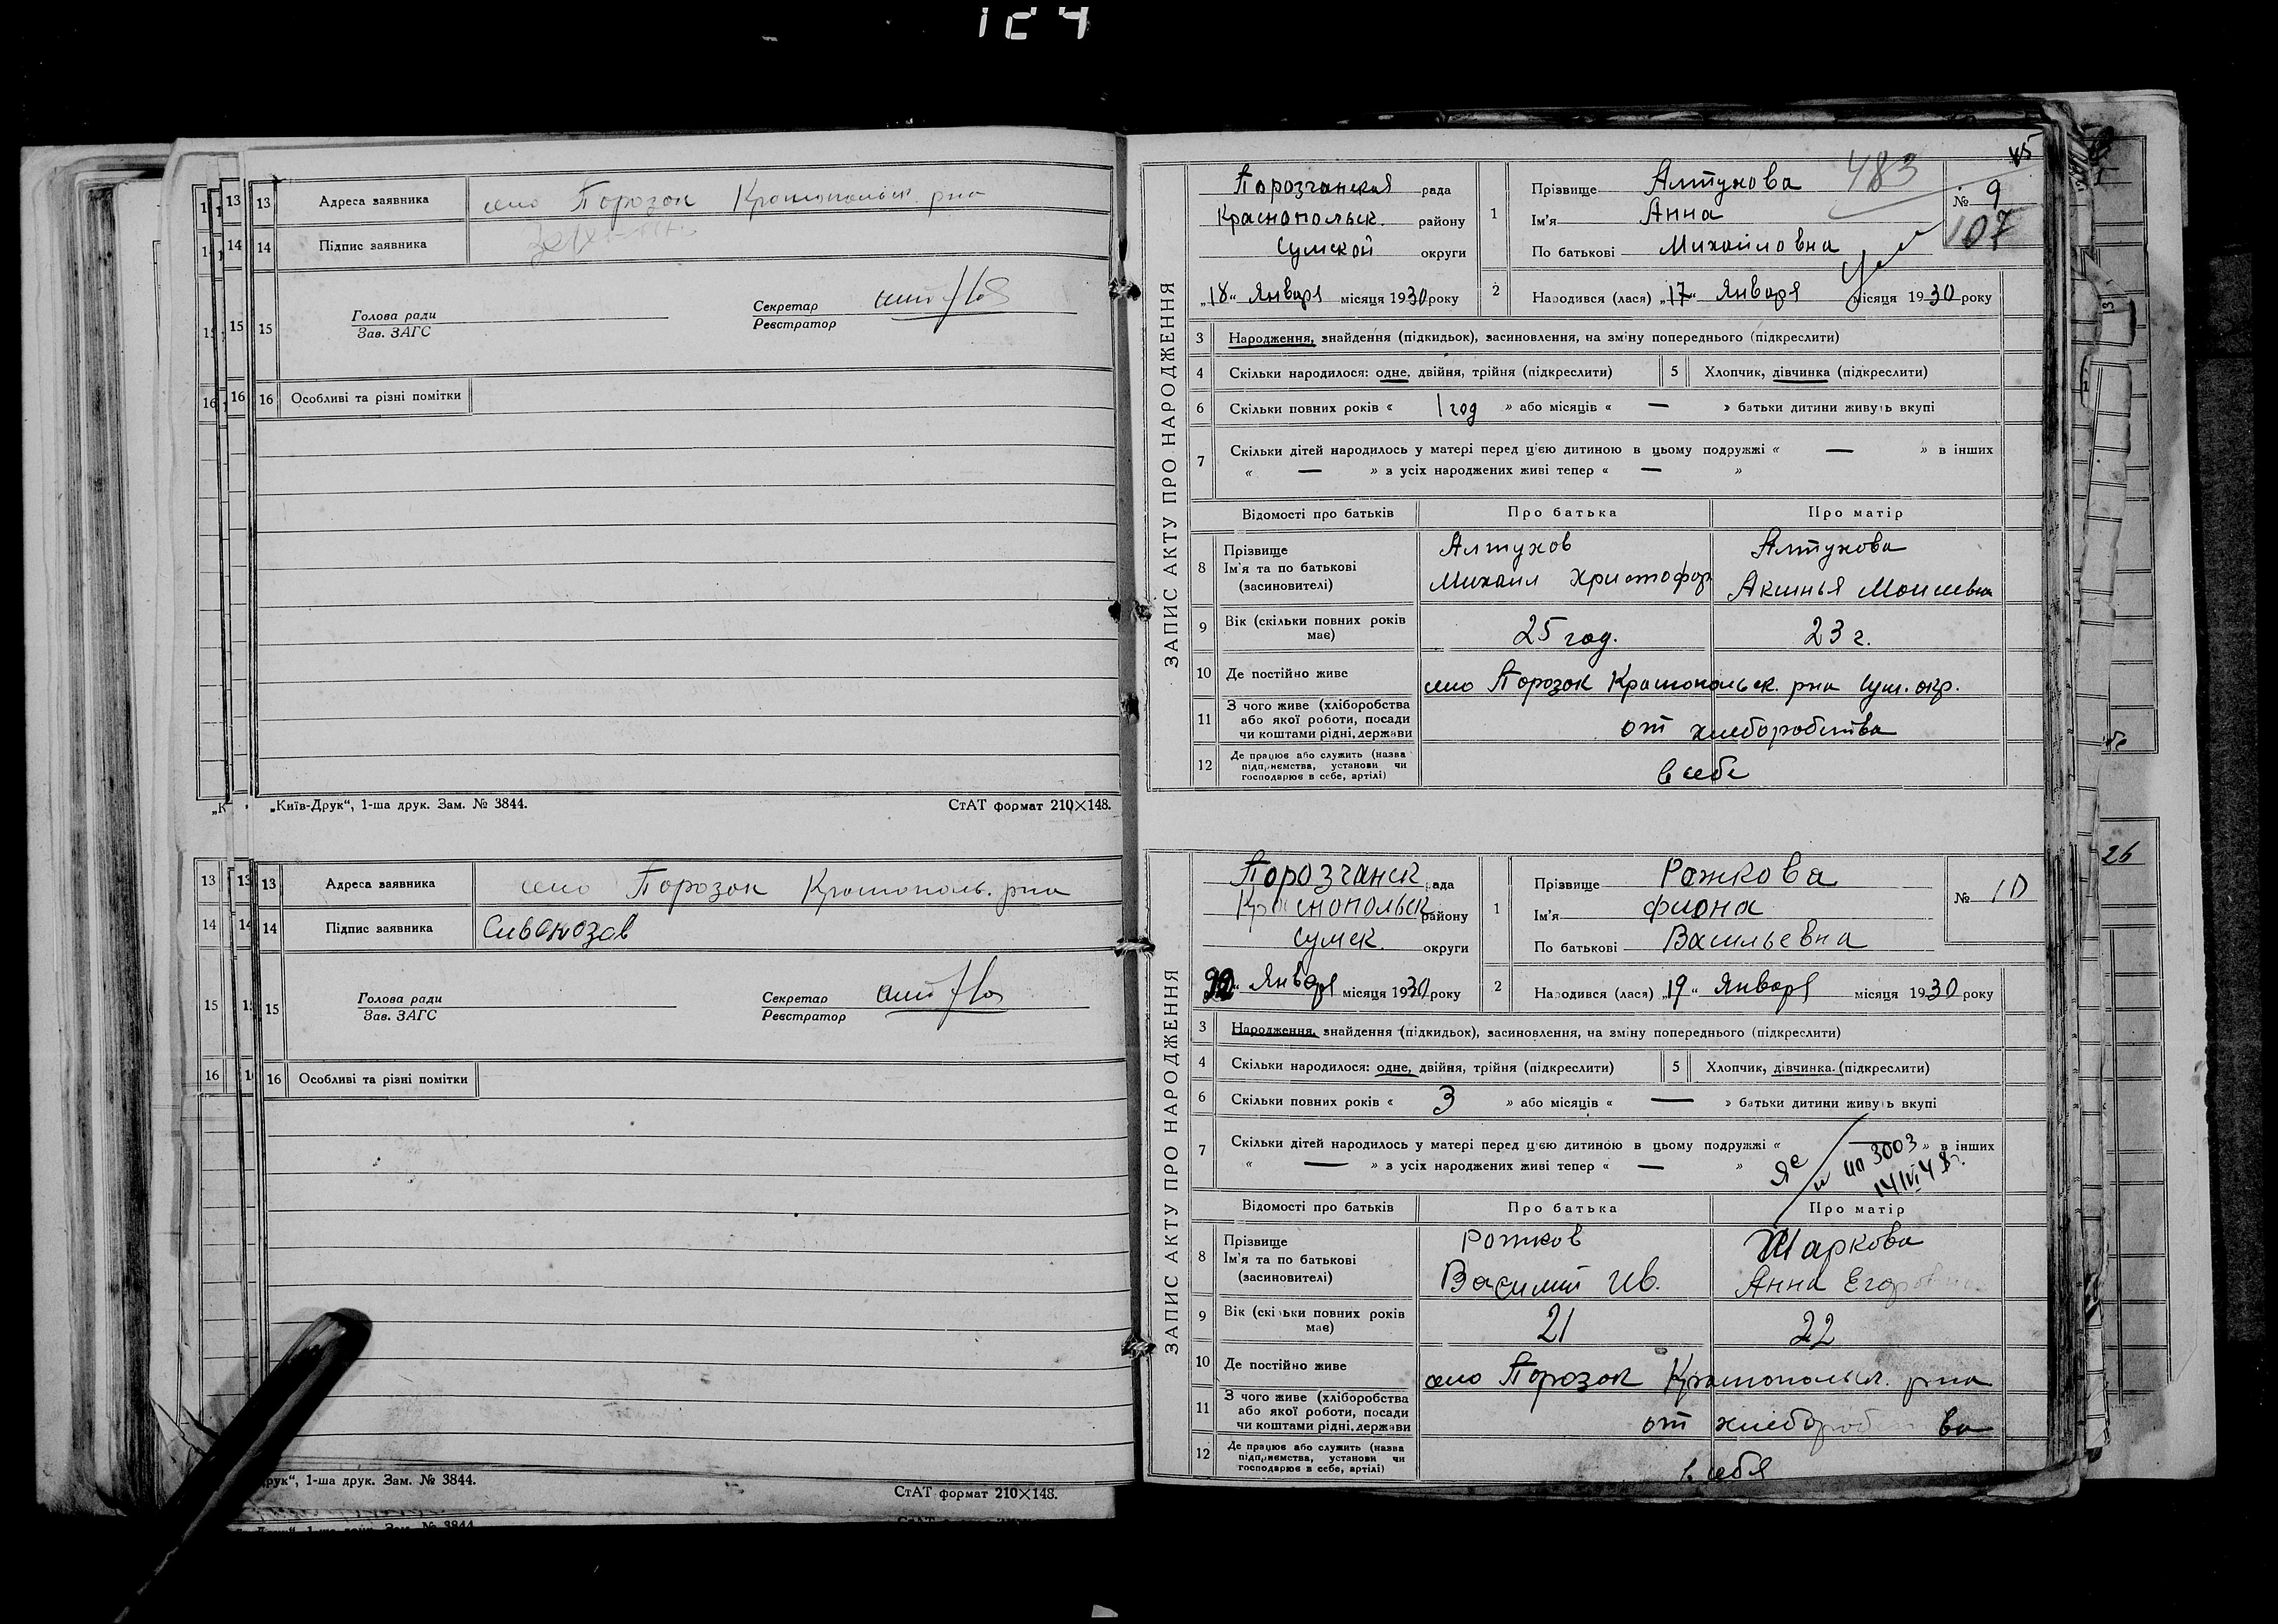 124
13 Адреса заявника село Порозок Краснопольск. рна
14 Підпис заявника
15 Голова ради
Зав. ЗАГС
Секретар
Реєстратор
16 Особливі та різні помітки
„Київ-Друк“, 1-ша друк. Зам. № 3844.
СтАТ формат 210×148.
13 Адреса заявника село Порозок Краснополь. рна
14 Підпис заявника
15 Голова ради
Зав. ЗАГС
Секретар
Реєстратор
16 Особливі та різні помітки
друк“, 1-ша друк. Зам. № 3844.
СтАТ формат 210×148.
45
ЗАПИС АКТУ ПРО НАРОДЖЕННЯ
Порозчанская рада
Краснопольск. району
Сумской округи
„18“ Января місяця 1930 року
1 Прізвище Алтухова 483
Ім'я Анна
По батькові Михайловна
№ 9
107
2 Народився (лася) „17“ Января місяця 1930 року
3 Народження, знайдення (підкидьок), засиновлення, на зміну попереднього (підкреслити)
4 Скільки народилося: одне, двійня, трійня (підкреслити) 5 Хлопчик, дівчинка (підкреслити)
6 Скільки повних років « 1 год » або місяців « — » батьки дитини живуть вкупі
7 Скільки дітей народилось у матері перед цією дитиною в цьому подружжі « — » в інших
« — » з усіх народжених живі тепер « — »
Відомості про батьків Про батька Про матір
8 Прізвище Алтухов Алтухова
Ім'я та по батькові Михаил Христофор Аксинья Моисевна
(засиновителі)
9 Вік (скільки повних років має) 25 год. 23 г.
10 Де постійно живе село Порозок Краснопольск. рна Сум. окр.
11 З чого живе (хліборобства
або якої роботи, посади
чи коштами рідні, держави от хлеборобства
12 Де працює або служить (назва
підприємства, установи чи
господарює в себе, артілі) в себе
ЗАПИС АКТУ ПРО НАРОДЖЕННЯ
Порозчанск. рада
Краснопольск району
Сумск. округи
Января місяця 1930 року
1 Прізвище Рожкова
Ім'я Фиона
По батькові Васильевна
№ 10
2 Народився (лася) „19“ Января місяця 1930 року
3 Народження, знайдення (підкидьок), засиновлення, на зміну попереднього (підкреслити)
4 Скільки народилося: одне, двійня, трійня (підкреслити) 5 Хлопчик, дівчинка (підкреслити)
6 Скільки повних років « 3 » або місяців « — » батьки дитини живуть вкупі
7 Скільки дітей народилось у матері перед цією дитиною в цьому подружжі « » в інших
« — » з усіх народжених живі тепер « — »
3003
Відомості про батьків Про батька Про матір
8 Прізвище Рожков Шаркова
Ім'я та по батькові Василий Ив. Анна Егоровна
(засиновителі)
9 Вік (скільки повних років має) 21 22
10 Де постійно живе село Порозок Краснопольск. рна
11 З чого живе (хліборобства
або якої роботи, посади
чи коштами рідні, держави от хлеборобства
12 Де працює або служить (назва
підприємства, установи чи
господарює в себе, артілі) в себя
26